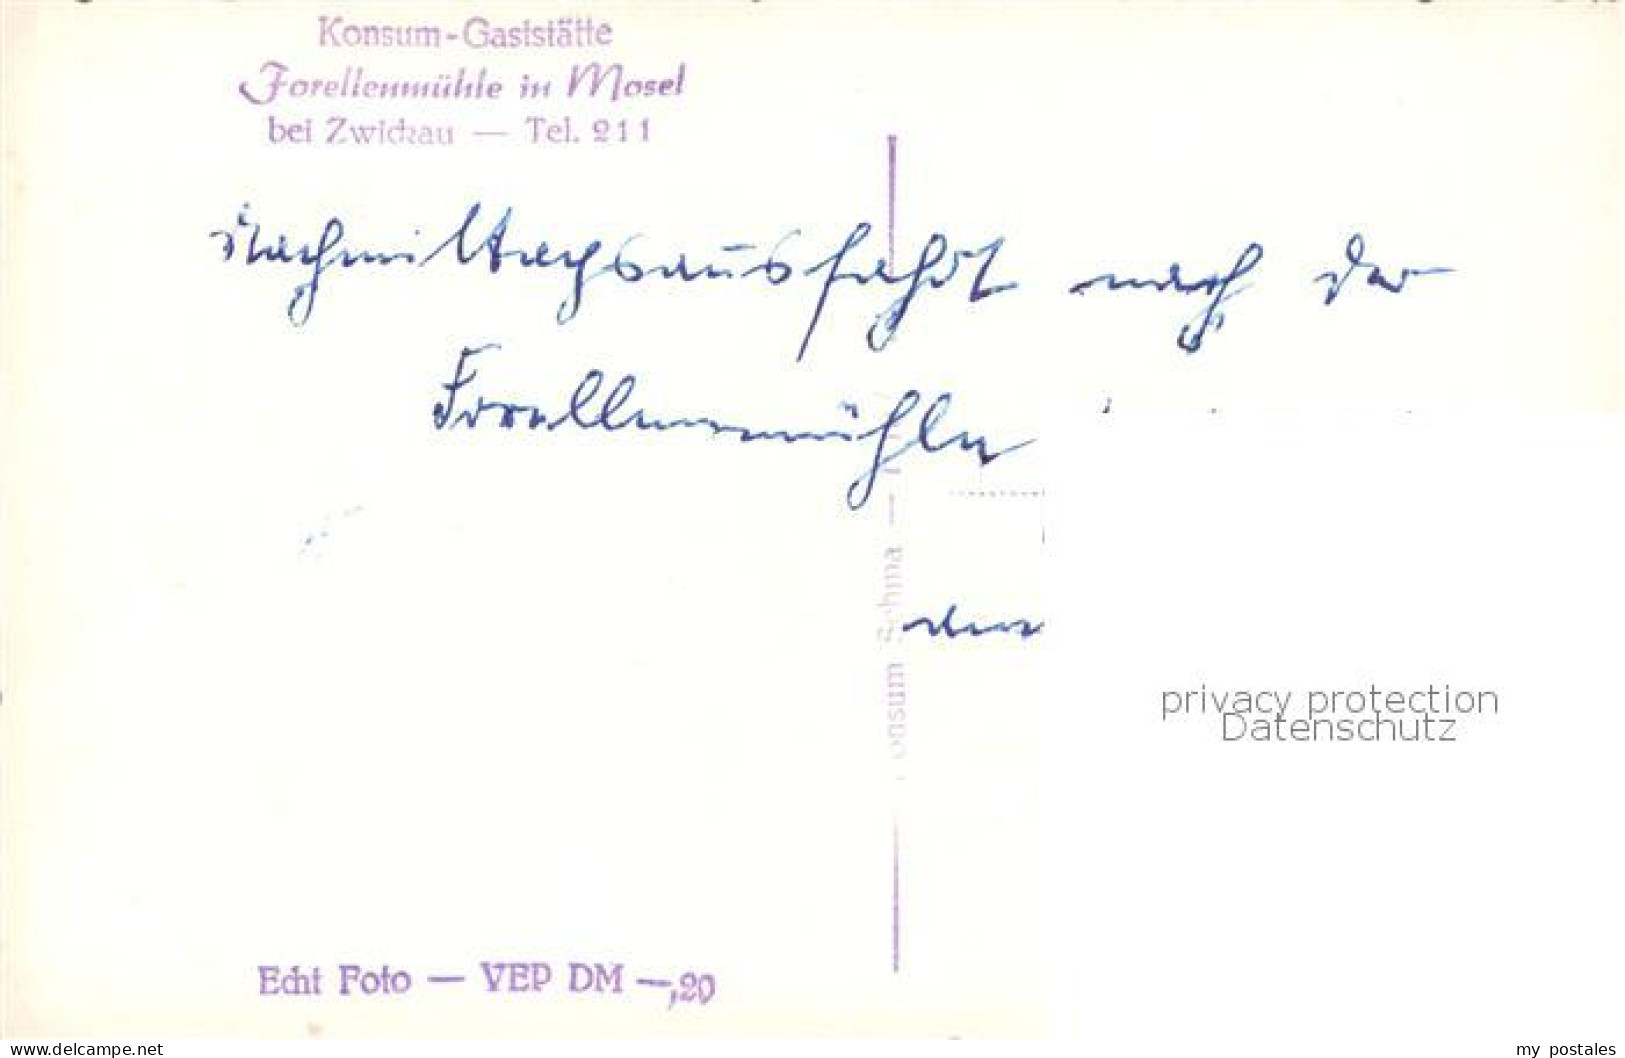 Konsum-Gaststätte
Forellenmühle in Mosel
bei Zwickau — Tel. 211
Nachmittagsausfahrt nach der
Forellenmühle
den
onsum Sehma —
privacy protection
Datenschutz
Echt Foto — VEP DM —,20
www.delcampe.net
my_postales